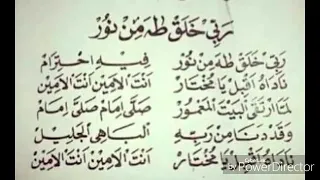 رَبِّيْ خَلَقْ طٰهَ مِنْ نُوْرْ
رَبِّيْ خَلَقْ طٰهَ مِنْ نُوْرْ فِيْهِ احْتِرَامْ
نَادَاهُ اَقْبِلْ يَا مُخْتَارْ اَنْتَ الْاَمِيْنْ اَنْتَ الْاَمِيْنْ
لَمَّا ارْتَقَى الْبَيْتَ الْمَعْمُوْرْ صَلَّى اِمَامْ صَلَّى اِمَامْ
وَقَدْ دَنَا مِنْ رَبِّهِ اَلْبَاهِي الْجَلِيْلْ
نَادَاهُ اَقْبِلْ يَا مُخْتَارْ اَنْتَ الْاَمِيْنْ اَنْتَ الْاَمِيْنْ
PowerDirector